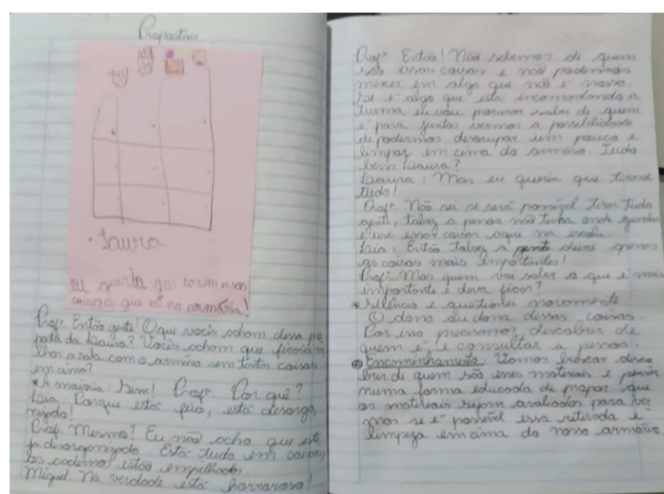 Propostas
Laura
eu queria que tirem essas
coisas que tá no armário!
Profª: Então gente! O que vocês acham dessa pro
posta da Laura? Vocês acham que ficaria me
lhor a sala com o armário sem tantas coisas
em cima?
* A maioria: Sim! Profª: Por quê?
Laia: Porque está feio, está desorga
nizado!
Profª: Mesmo? Eu não acho que este
ja desorganizado. Está tudo em caixas
os cadernos estão empilhados.
Miguel: Na verdade está horroroso!
Profª: Então! Nós sabemos de quem
são essas coisas e não podemos
mexer em algo que não é nosso.
Se é algo que está incomodando a
turma eu vou procurar saber de quem
é para juntos vermos a possibilidade
de podermos desocupar um pouco e
limpar em cima do armário. Tudo
bem Laura?
Laura: Mas eu queria que tirasse
tudo!
Profª: Não sei se será possível tirar tudo
talvez a pessoa não tenha onde guardar
e use essas coisas aqui na escola.
Laia: Então talvez a gente deixe apenas
as coisas mais importantes!
Profª: Mas quem vai saber o que é mais
importante e deve ficar?
* Silêncio e questionei novamente
O dono ou dona dessas coisas.
Por isso precisamos descobrir de
quem é e consultar a pessoa.
Encaminhamento: Vamos buscar desco
brir de quem são esses materiais e pensar
numa forma educada de propor que
os materiais sejam avaliados para ver
mos se é possível essa retirada e
limpeza em cima do nosso armário